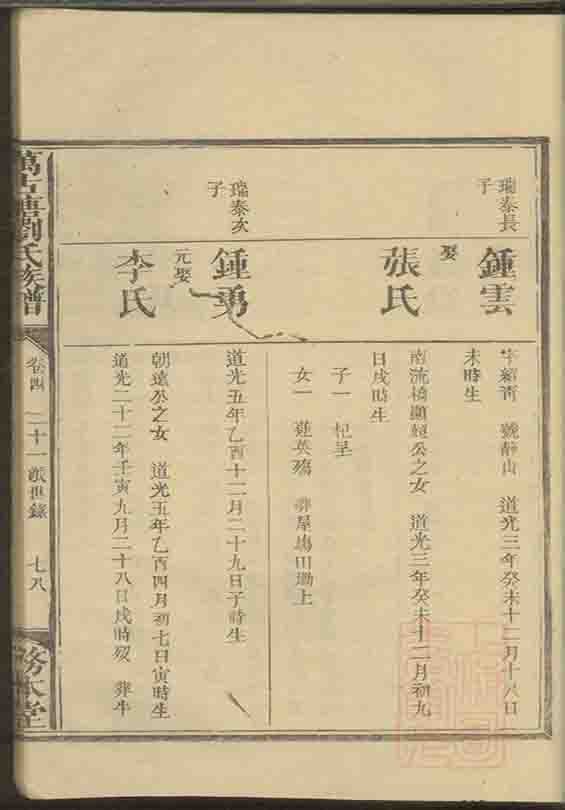 瑞泰長子
鍾雲
字紹青 號靜山 道光三年癸未十二月十八日
未時生
娶
張氏
南流橋顯經公之女 道光三年癸未十二月初九
日戌時生
子一 杞呈
女一 蓮英殤 葬屋塲田墈上
瑞泰次子
鍾勇
道光五年乙酉十二月二十九日子時生
元娶
李氏
朝遠公之女 道光五年乙酉四月初七日寅時生
道光二十二年壬寅九月二十八日戌時歿 葬牛
萬古塘劉氏族譜
卷四 二十一派世錄 七八
務本堂